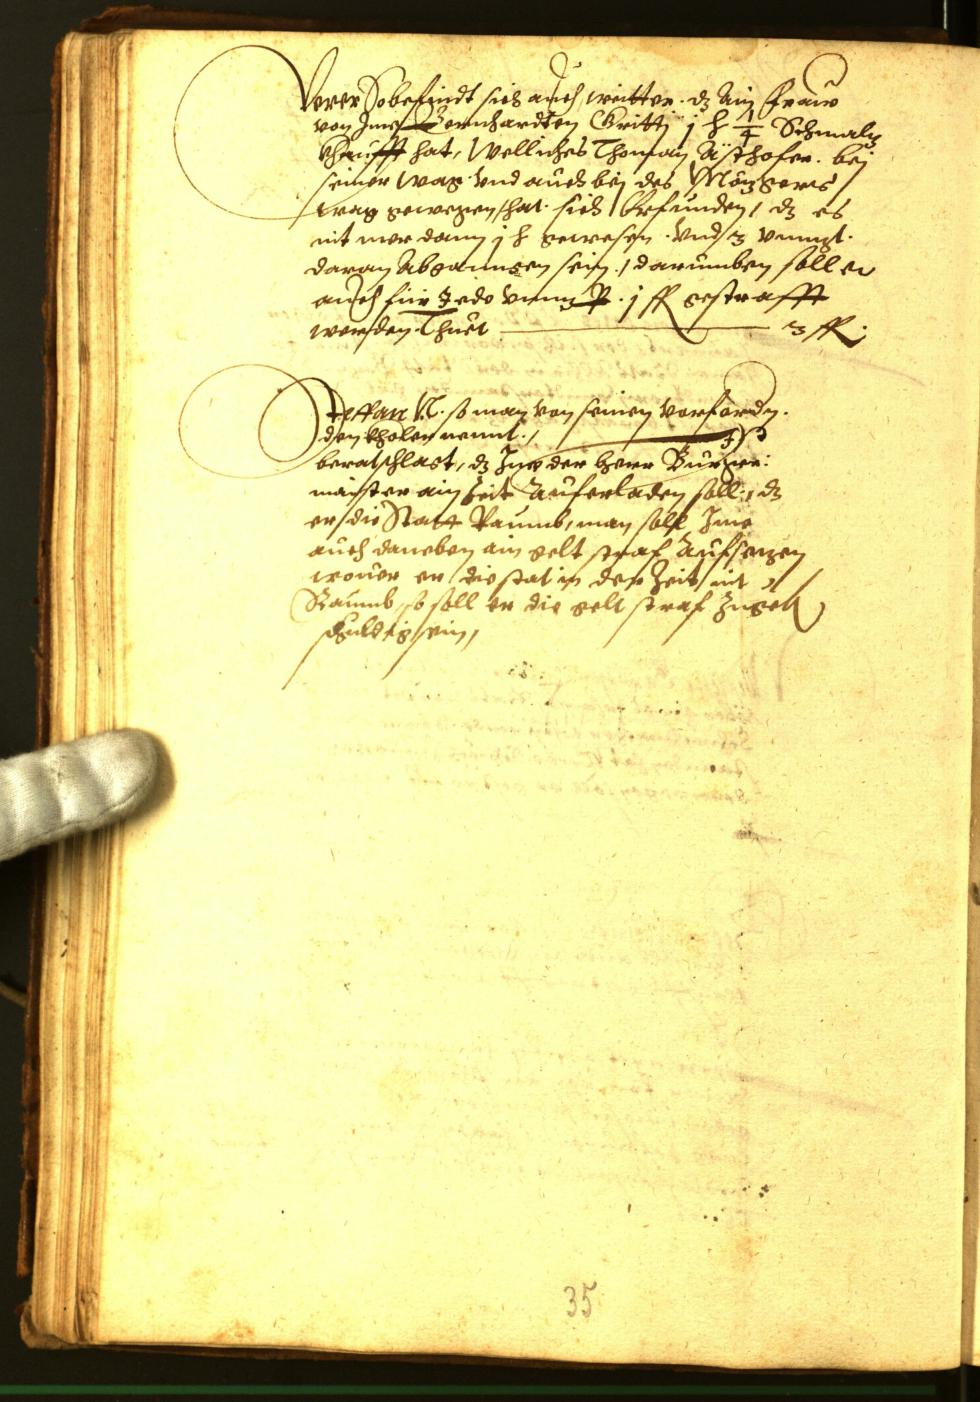 Verer So befindt sich auch weitter. dz Ain Fraw
von Ime Bernhardten Gritti j ℔ 1/4 Schmalz
khaufft hat, Welliches Thoman Ästhofer. bei
seiner Wag. Vnd auch bei des Mözgers
wag gewegen, hat sich Erfunden, dz es
nit mer dann j ℔ gewesen. Vnd 3
daran Abganngen sein, darumben soll er
auch für Jede j gestrafft
werden Thuet 3
Steffan N. so man von seinen vorfordern
den kholer nennt,
beratschlagt, dz Ime der herr Burger:
maister ain Zeit Auferladen soll, dz
er die Statt Raumb, man soll Ime
auch daneben ain gelt straf Aufsetzen
wouer er die stat in der Zeit nit
Raumb, so soll er die gelt straf
schuldig sein,
35